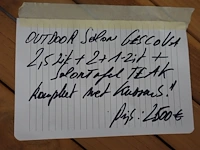 OUTDOOR Salon GESCOVA
2,5 zit + 2 + 1-zit +
Salontafel TEAK
Kompleet met Kussens!!
Prijs: 2500 €